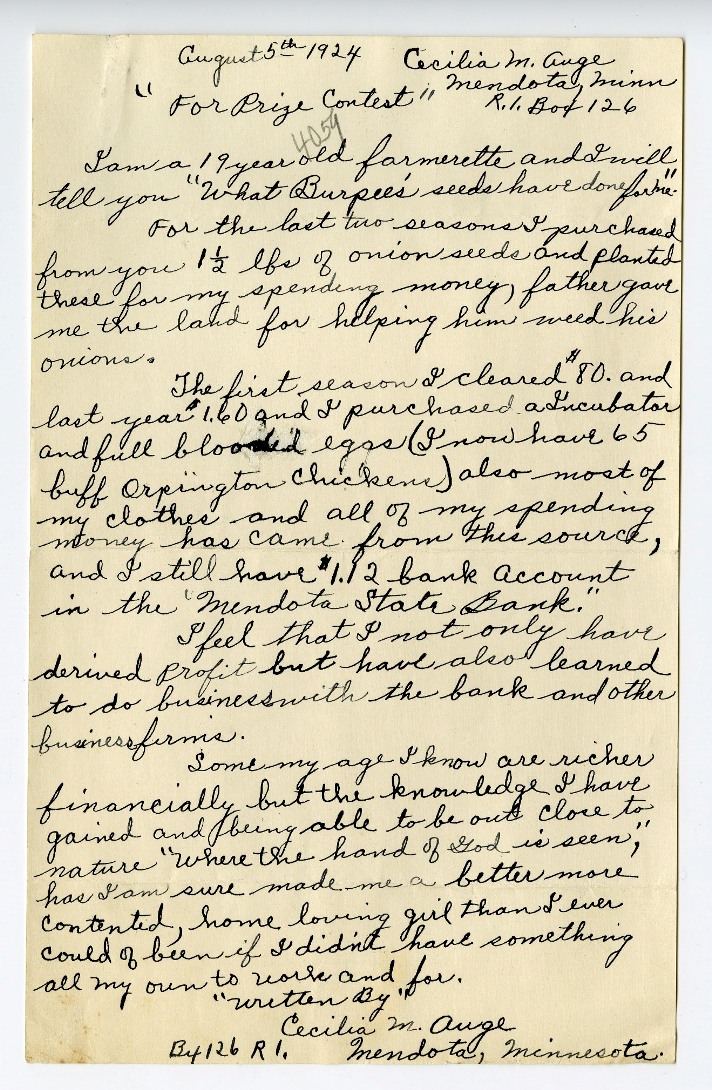 August 5th 1924 Cecilia M. Auge
Mendota, Minn
"For Prize Contest" R.1. Box 126
4059
I am a 19 year old farmerette and I will
tell you "What Burpee's seeds have done for me."
For the last two seasons I purchased
from you 1½ lbs of onion seeds and planted
these for my spending money, father gave
me the land for helping him weed his
onions.
The first season I cleared $80. and
last year $1.60 and I purchased a Incubator
and full blooded eggs (I now have 65
buff Orpington Chickens) also most of
my clothes and all of my spending
money has came from this source,
and I still have $1.12 bank account
in the "Mendota State Bank."
I feel that I not only have
derived profit but have also learned
to do business with the bank and other
business firms.
Some my age I know are richer
financially but the knowledge I have
gained and being able to be out close to
nature "Where the hand of God is seen,"
has I am sure made me a better more
contented, home loving girl than I ever
could of been if I didn't have something
all my own to work and for.
"Written By"
Cecilia M. Auge
Bx 126 R 1. Mendota, Minnesota.